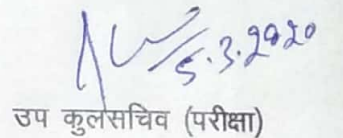 5.3.2020
उप कुलसचिव (परीक्षा)